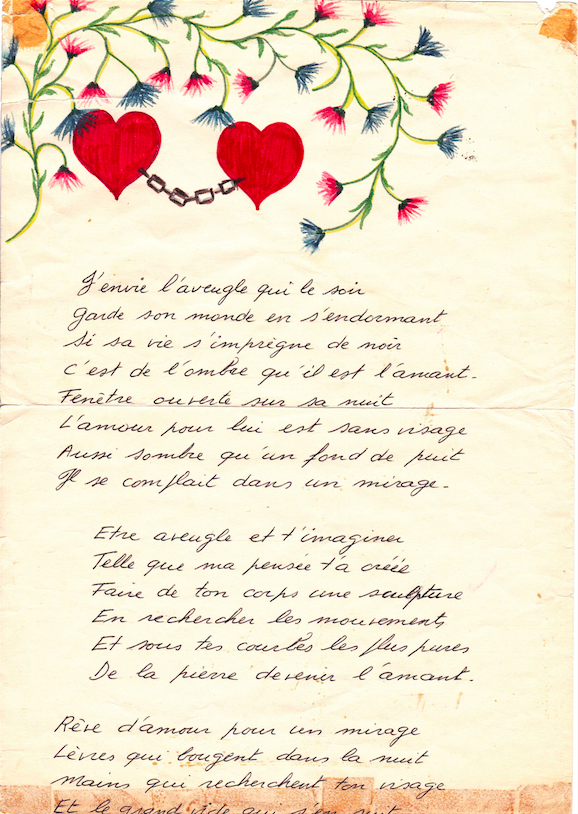 J'envie l'aveugle qui le soir
Garde son monde en s'endormant
Si sa vie s'imprègne de noir
C'est de l'ombre qu'il est l'amant.
Fenêtre ouverte sur sa nuit
L'amour pour lui est sans visage
Aussi sombre qu'un fond de puit
Il se complait dans un mirage.
Etre aveugle et t'imaginer
Telle que ma pensée t'a créée
Faire de ton corps une sculpture
En rechercher les mouvements
Et sous tes courbes les plus pures
De la pierre devenir l'amant.
Rêve d'amour pour un mirage
Lèvres qui bougent dans la nuit
Mains qui recherchent ton visage
Et le grand vide qui s'en suit